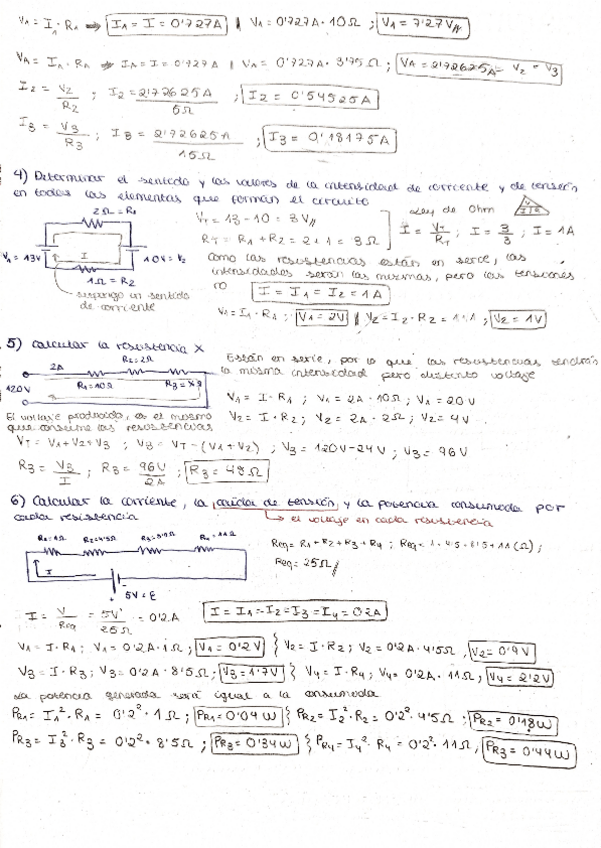 V₁ = I₁ · R₁ ⇒ I₁ = I = 0'727A | V₁ = 0'727A · 10Ω ; V₁ = 7'27V//
V₁ = I₁ · R₁ ⇒ I₁ = I = 0'727A | V₁ = 0'727A · 3'75Ω ; V₁ = 2'72625A = V₂ = V₃
I₂ = V₂/R₂ ; I₂ = 2'72625A/5Ω ; I₂ = 0'54525A
I₃ = V₃/R₃ ; I₃ = 2'72625A/15Ω ; I₃ = 0'18175A
4) Determinar el sentido y los valores de la intensidad de corriente y de tensión
en todos los elementos que forman el circuito
2Ω = R₁
V₁ = 13V
I
10V = V₂
1Ω = R₂
supongo un sentido
de corriente
V_T = 13 - 10 = 3V//
R_T = R₁ + R₂ = 2 + 1 = 3Ω
Ley de Ohm
I = V_T/R_T ; I = 3/3 ; I = 1A
como las resistencias están en serie, las
intensidades serán las mismas, pero las tensiones
no I = I₁ = I₂ = 1A
V₁ = I₁ · R₁ ; V₁ = 2V || V₂ = I₂ · R₂ = 1 · 1 ; V₂ = 1V
5) calcular la resistencia X
2A R₂ = 2Ω
R₁ = 10Ω R₃ = X
120V
Están en serie, por lo que las resistencias tendrán
la misma intensidad pero distinto voltaje
V₁ = I · R₁ ; V₁ = 2A · 10Ω ; V₁ = 20V
V₂ = I · R₂ ; V₂ = 2A · 2Ω ; V₂ = 4V
El voltaje producido, es el mismo
que consume las resistencias
V_T = V₁ + V₂ + V₃ ; V₃ = V_T - (V₁ + V₂) ; V₃ = 120V - 24V ; V₃ = 96V
R₃ = V₃/I ; R₃ = 96V/2A ; R₃ = 48Ω
6) Calcular la corriente, la caída de tensión, y la potencia consumida por
cada resistencia
→ el voltaje en cada resistencia
R₁ = 1Ω R₂ = 4'5Ω R₃ = 8'5Ω R₄ = 11Ω
I
5V = ε
Req = R₁ + R₂ + R₃ + R₄ ; Req = 1 + 4'5 + 8'5 + 11 (Ω) ;
Req = 25Ω//
I = V/Req = 5V/25Ω = 0'2A I = I₁ = I₂ = I₃ = I₄ = 0'2A
V₁ = I · R₁ ; V₁ = 0'2A · 1Ω ; V₁ = 0'2V } V₂ = I · R₂ ; V₂ = 0'2A · 4'5Ω , V₂ = 0'9V
V₃ = I · R₃ ; V₃ = 0'2A · 8'5Ω ; V₃ = 1'7V } V₄ = I · R₄ ; V₄ = 0'2A · 11Ω ; V₄ = 2'2V
La potencia generada será igual a la consumida
P_R₁ = I₁² · R₁ = 0'2² · 1Ω ; P_R₁ = 0'04W } P_R₂ = I₂² · R₂ = 0'2² · 4'5Ω ; P_R₂ = 0'18W
P_R₃ = I₃² · R₃ = 0'2² · 8'5Ω ; P_R₃ = 0'34W } P_R₄ = I₄² · R₄ = 0'2² · 11Ω , P_R₄ = 0'44W